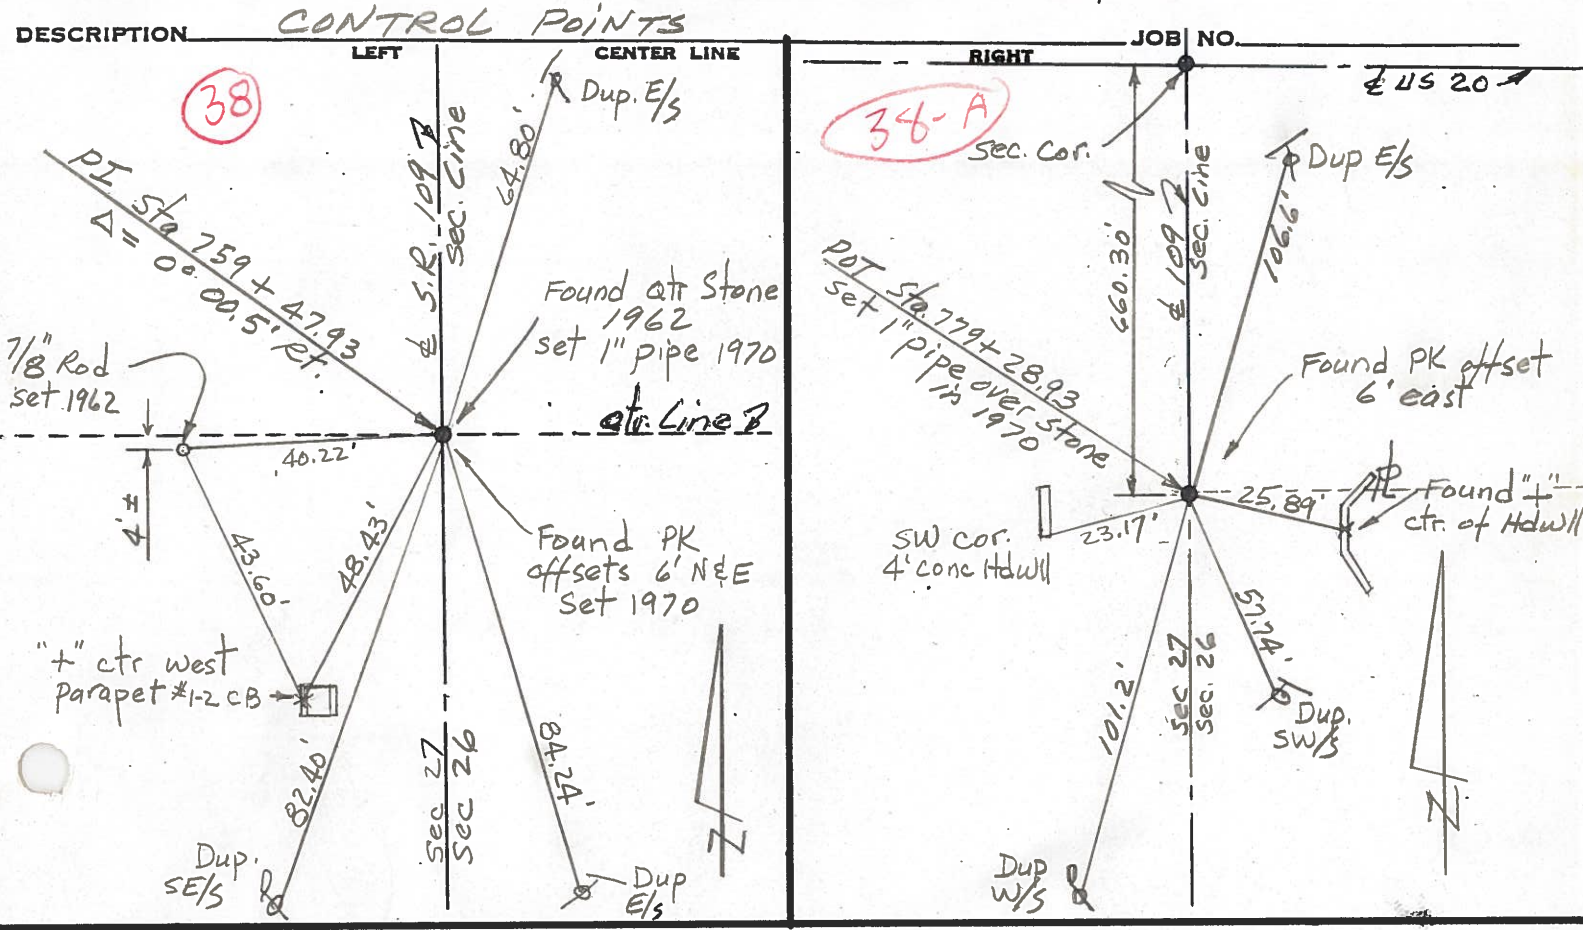 DESCRIPTION CONTROL POINTS
LEFT
CENTER LINE
38
Dup. E/S
64.80'
℄ S.R. 109
Sec. Line
PI Sta 759 + 47.93
Δ = 0° 00.5' Rt.
Found Qtr Stone
1962
set 1" pipe 1970
7/8" Rod
set 1962
Qtr. Line
40.22'
4'±
43.60
48.43'
Found PK
offsets 6' N & E
Set 1970
"+" ctr west
Parapet #1-2 CB
82.40'
84.24'
Sec 27
Sec 26
N
Dup.
SE/S
Dup
E/S
JOB NO.
RIGHT
℄ US 20
38-A
Sec. Cor.
Dup E/S
660.30'
℄ 109
Sec. Line
106.6'
POT Sta. 779 + 28.93
Set 1" pipe over stone
in 1970
Found PK offset
6' east
25.89'
Found "+"
ctr. of Hdwll
23.17'
SW cor.
4' conc Hdwll
57.74'
101.2'
Sec 27
Sec. 26
Dup.
SW/S
Dup
W/S
N